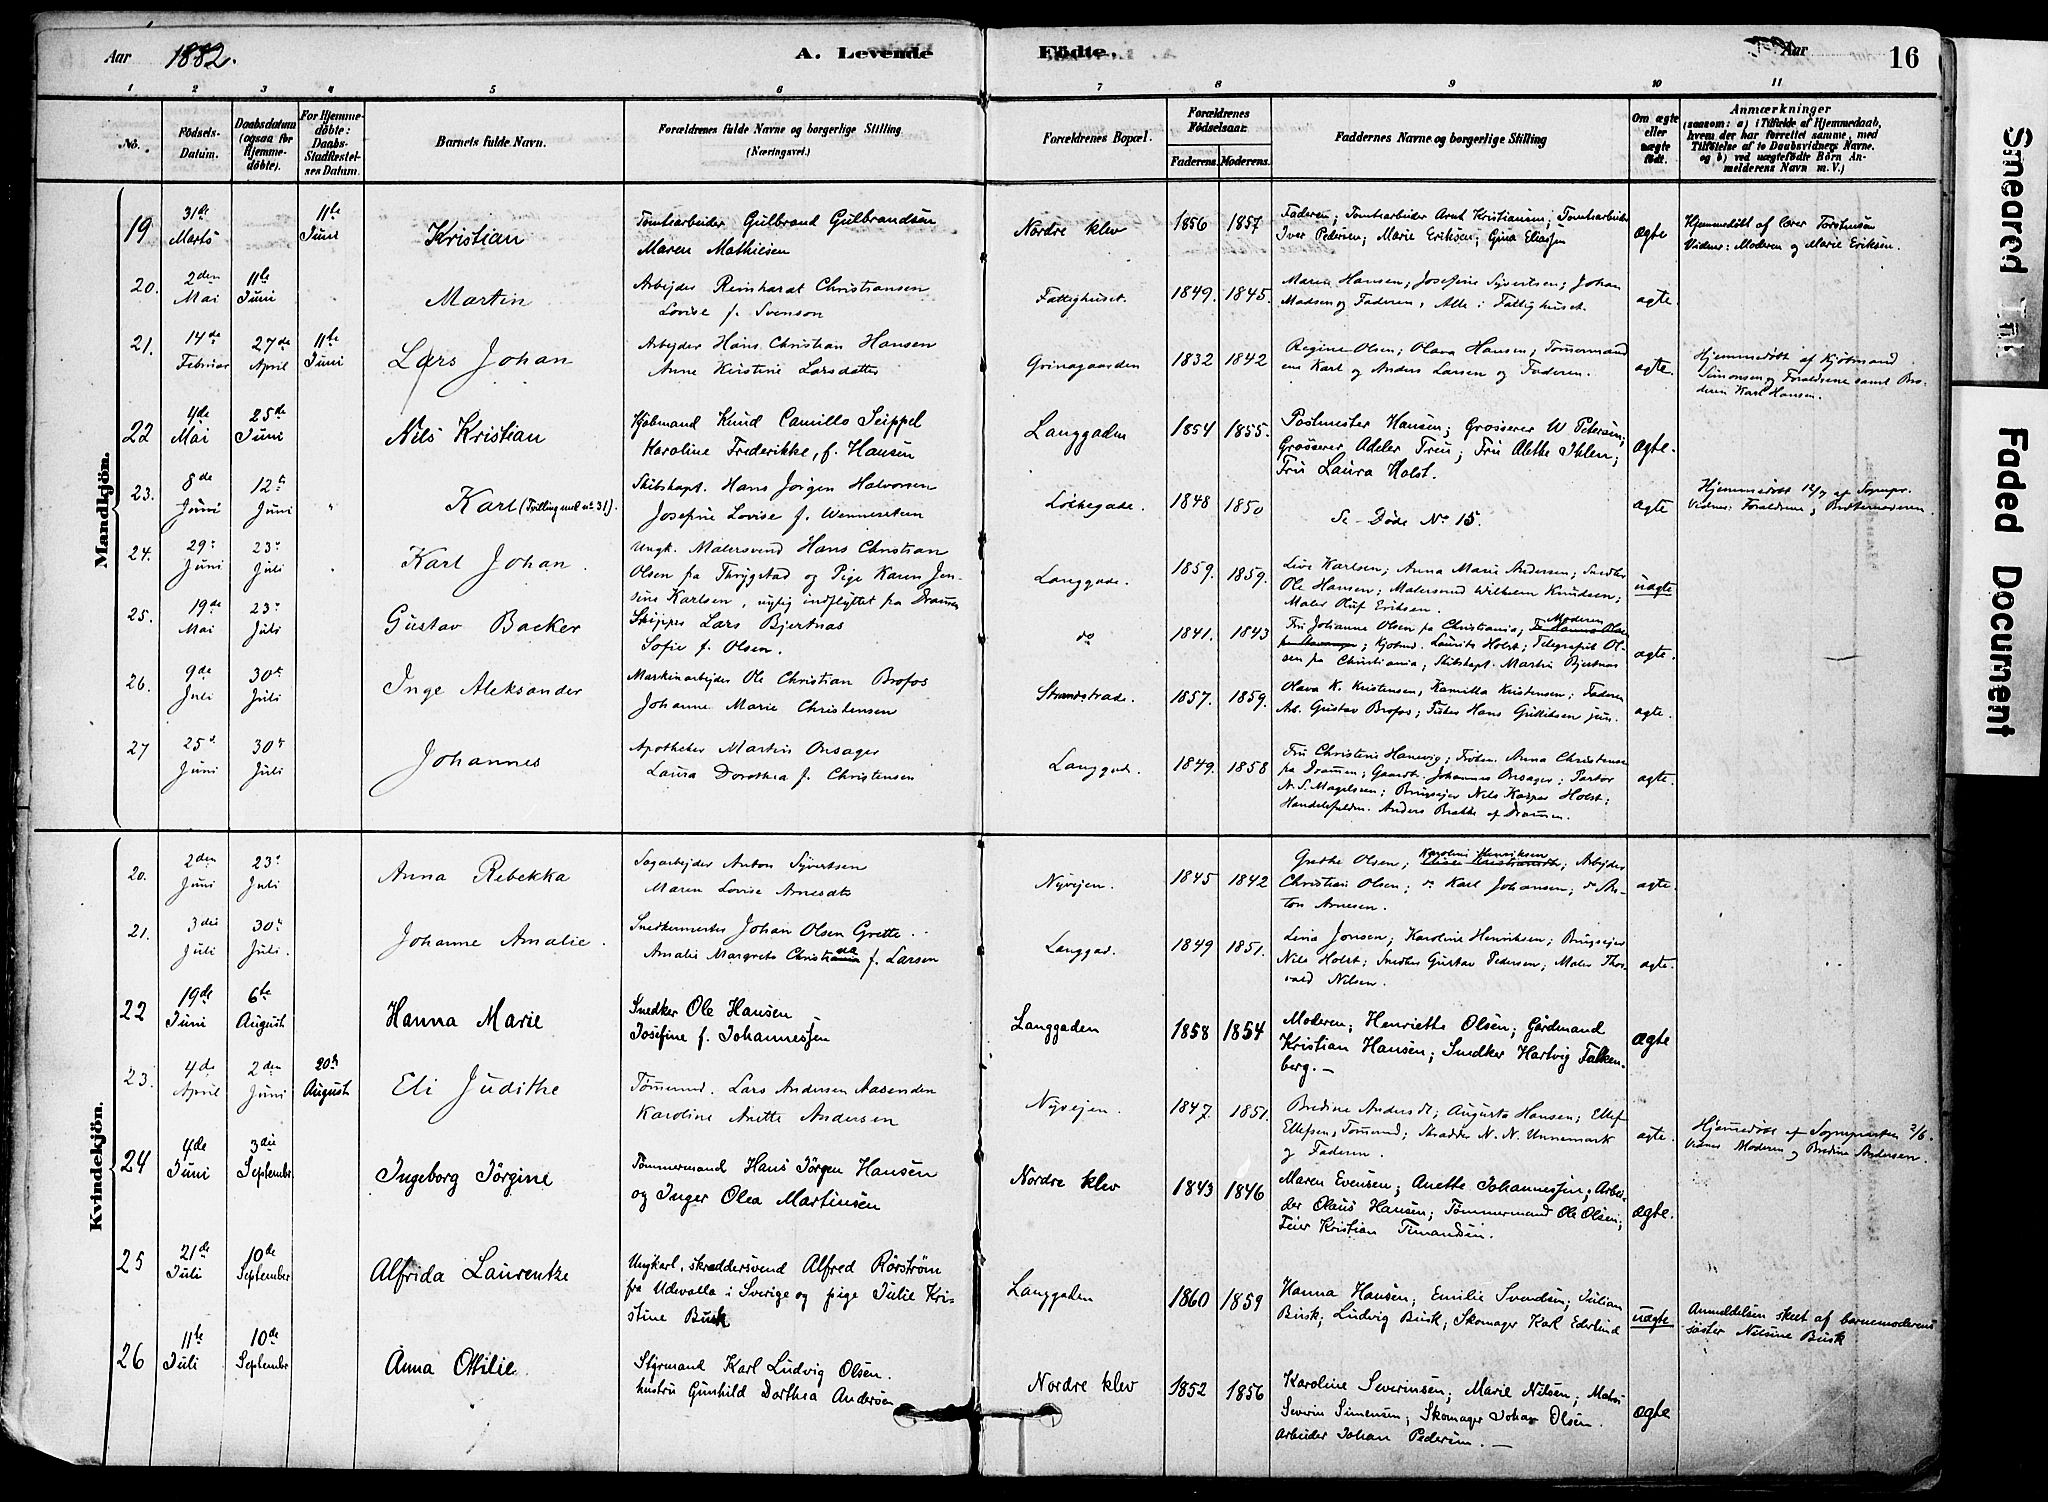 Aar 1882. A. Levende Födte. Aar 16
1 2 3 4 5 6 7 8 9 10 11
No. Födsels-Datum. Daabsdatum (ogsaa for Hjemmedöbte). For Hjemmedöbte: Daabs-Stadfæstelses Datum. Barnets fulde Navn. Forældrenes fulde Navne og borgerlige Stilling (Næringsvei.) Forældrenes Bopæl. Forældrenes Födselsaar. Faderens. Moderens. Faddernes Navne og borgerlige Stilling Om ægte eller uægte födt. Anmærkninger (saasom: a) i Tilfælde af Hjemmedaab, hvem der har forrettet samme, med Tilföielse af to Daabsvidners Navne. og b) ved uægtefödte Börn Anmelderens Navn m. V.)
Mandkjön.
19 31te Marts 11te Juni Kristian Tomtearbeider Gulbrand Gulbrandsen
Maren Mathiesen
Nordre klev 1856 1857 Faderen; Tomtearbeider Arnt Kristiansen; Tomtearbeider
Iver Pedersen; Marie Eriksen; Gina Eliassen
ægte Hjemmedöbt af lærer Torstensen
Vidner: Moderen og Marie Eriksen.
20. 2den Mai 11te Juni Martin Arbejder Reinhardt Christiansen
Lovise f. Svenson
Fattighuset. 1849. 1845. Maren Hansen; Josefine Syvertsen; Johan
Madsen og Faderen; Alle i Fattighuset.
ægte.
21. 14de Februar 27de April 11te Juni Lars Johan Arbejder Hans Christian Hansen
Anne Kirstine Larsdatter
Grinagaarden 1832 1842 Regine Olsen; Olava Hansen; Tömmermænd
ene Karl og Anders Larsen og Faderen.
ægte. Hjemmedöbt af Kjöbmand
Simonsen og Forældrene samt Bro-
deren Karl Hansen.
22 4de Mai 25de Juni Nils Kristian Kjöbmand Knud Camillo Seippel
Karoline Frederikke, f. Hansen
Langgaden 1854 1855. Postmester Hansen; Grosserer W Petersen;
Grosserer Adeler Treu; Fru Alethe Ihlen;
Fru Laura Holst.
ægte.
23. 8de Juni 12te Juni " Karl (Tvilling med no 31). Skibskapt. Hans Jörgen Halvorsen
Josefine Lovise f. Wennerstrøm
Lökkegade. 1848 1850 Se Döde No 15.
ægte Hjemmedöbt 12/7 af Sognepr.
Vidner: Forældrene og Bedstemoderen
24. 29de Juni 23de Juli Karl Johan. Ungk. Malersvend Hans Christian
Olsen fra Thrygstad og Pige Karen Jen-
sine Karlsen, nylig indflyttet fra Drammen
Langgade. 1859. 1859. Live Karlsen; Anna Marie Andersen; Snedker
Ole Hansen; Malersvend Wilhelm Knudsen;
Maler Oluf Eriksen.
uægte
25. 19de Mai 23de Juli Gustav Backer Skipper Lars Bjertnæs
Sofie f. Olsen.
do 1841. 1843 Fru Johanne Olsen fra Christiania; Moderen
; Kjøbmd. Laurits Holst; Telegrafist Ol-
sen fra Christiania; Skibskapt. Martin Bjertnæs
ægte.
26. 9de Juli 30te Juli Inge Aleksander Maskinarbejder Ole Christian Brofos
Johanne Marie Christensen
Strandstræde. 1857. 1859. Olava K. Kristensen, Kamilla Kristensen; Faderen
Arb. Gustav Brofos; Fisker Hans Gullichsen jun.
ægte.
27 25de Juni 30te Juli Johannes Apotheker Martin Onsager
Laura Dorothea f. Christensen
Langgad. 1849. 1858 Fru Christine Hanevig; Fröken Anna Christensen
fra Drammen; Gaardb. Johannes Onsager; Pastor
N. S. Magelssen; Brugsejer Nils Kasper Holst;
Handelsfuldm. Anders Brække af Drammen.
ægte.
Kvindekjön.
20. 2den Juni 23de Juli Anna Rebekka Sagarbejder Anton Syvertsen
Maren Lovise Arnesdt
Nyvejen. 1845 1842 Grethe Olsen; Karoline Henriksen; Arbejder
Christian Olsen; do Karl Johansen; do An-
ton Arnesen.
ægte.
21. 3die Juli 30te Juli. Johanne Amalie. Snedkermester Johan Olsen Grette.
Amalie Margrete Christiane f. Larsen
Langgad. 1849 1851. Lina Jonsen; Karoline Henriksen; Brugsejer
Nils Holst; Snedker Gustav Pedersen; Maler Thor-
vald Nilsen.
ægte.
22 19de Juni 6te August Hanna Marie Snedker Ole Hansen
Josefine f. Johannessen
Langgaden 1858 1854 Moderen; Henriette Olsen; Gårdmand
Kristian Hansen; Snedker Hartvig Falken-
berg.—
ægte
23. 4de April 2den Juni 20de August Eli Judithe Tömmermd. Lars Andersen Aasenden
Karoline Anette Andersen
Nyvejen. 1847. 1851. Bredine Andersdt; Augusta Hansen; Ellef
Ellefsen, Tömmermd; Skrædder N. N. Unnemark
og Faderen.
ægte. Hjemmedöbt af Sognepresten 2/6.
Vidner Moderen og Bredine Andersen.
24 4de Juni 3die September Ingeborg Jörgine Tömmermand Hans Jörgen Hansen
og Inger Olea Martinsen
Nordre klev 1843 1846 Maren Evensen; Anette Johannessen; Arbei-
der Olaus Hansen; Tömmermand Ole Olsen;
Feier Kristian Timandsen.
ægte.
25 21de Juli 10de September Alfrida Laurentze Ungkarl, skræddersvend Alfred Rörström
fra Udevalla i Sverige og pige Julie Kri-
stine Busk
Langgaden 1860 1859 Hanna Hansen; Emilie Svendsen; Julian
Busk; Ludvig Busk; Skomager Karl Ederlund
uægte Anmeldelsen skeet af barnemoderens
söster Nilsine Busk
26 11te Juli 10de September Anna Ottilie Styrmand Karl Ludvig Olsen.
hustru Gunhild Dorthea Andersen
Nordre klev 1852 1856 Karoline Severinsen; Marie Nilsen; Matros
Severin Simensen; Skomager Johan Olsen.
Arbeider Johan Pedersen.—
ægte
Smeared Ink
Faded Document